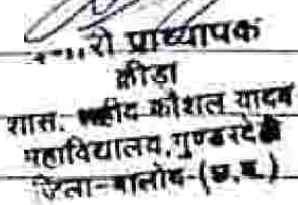 प्रभारी प्राध्यापक
क्रीडा
शास. शहीद कौशल यादव
महाविद्यालय, गुण्डरदेही
जिला-बालोद (छ.ग.)